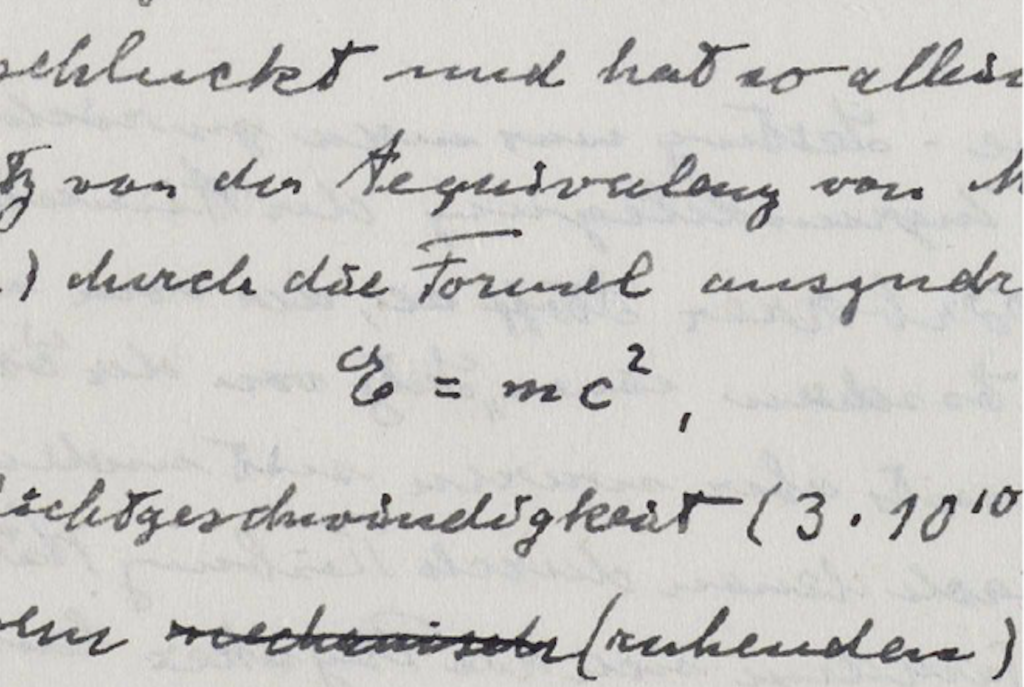 schluckt und hat so allein
tz von der Aequivalenz von M
.) durch die Formel auszudr
E = mc²,
Lichtgeschwindigkeit (3 . 10¹⁰
mechanisch (ruhenden)